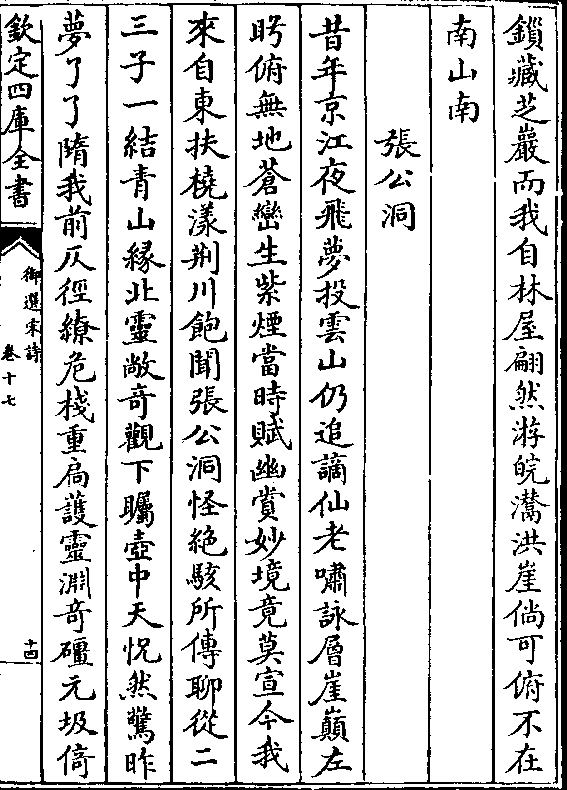 鎖藏芝巖而我自林屋翩然游皖灊洪崖倘可俯不在
南山南
張公洞
昔年京江夜飛夢投雲山仍追謫仙老嘯詠層崖巔左
眄俯無地蒼巒生紫煙當時賦幽賞妙境竟莫宣今我
來自東扶橈漾荆川飽聞張公洞怪絶駭所傳聊從二
三子一結青山緣北靈敞奇觀下矚壺中天怳然驚昨
夢了了隋我前仄徑繚危棧重扃護靈淵奇礓元圾倚
欽定四庫全書
御選宋詩
卷十七
十四